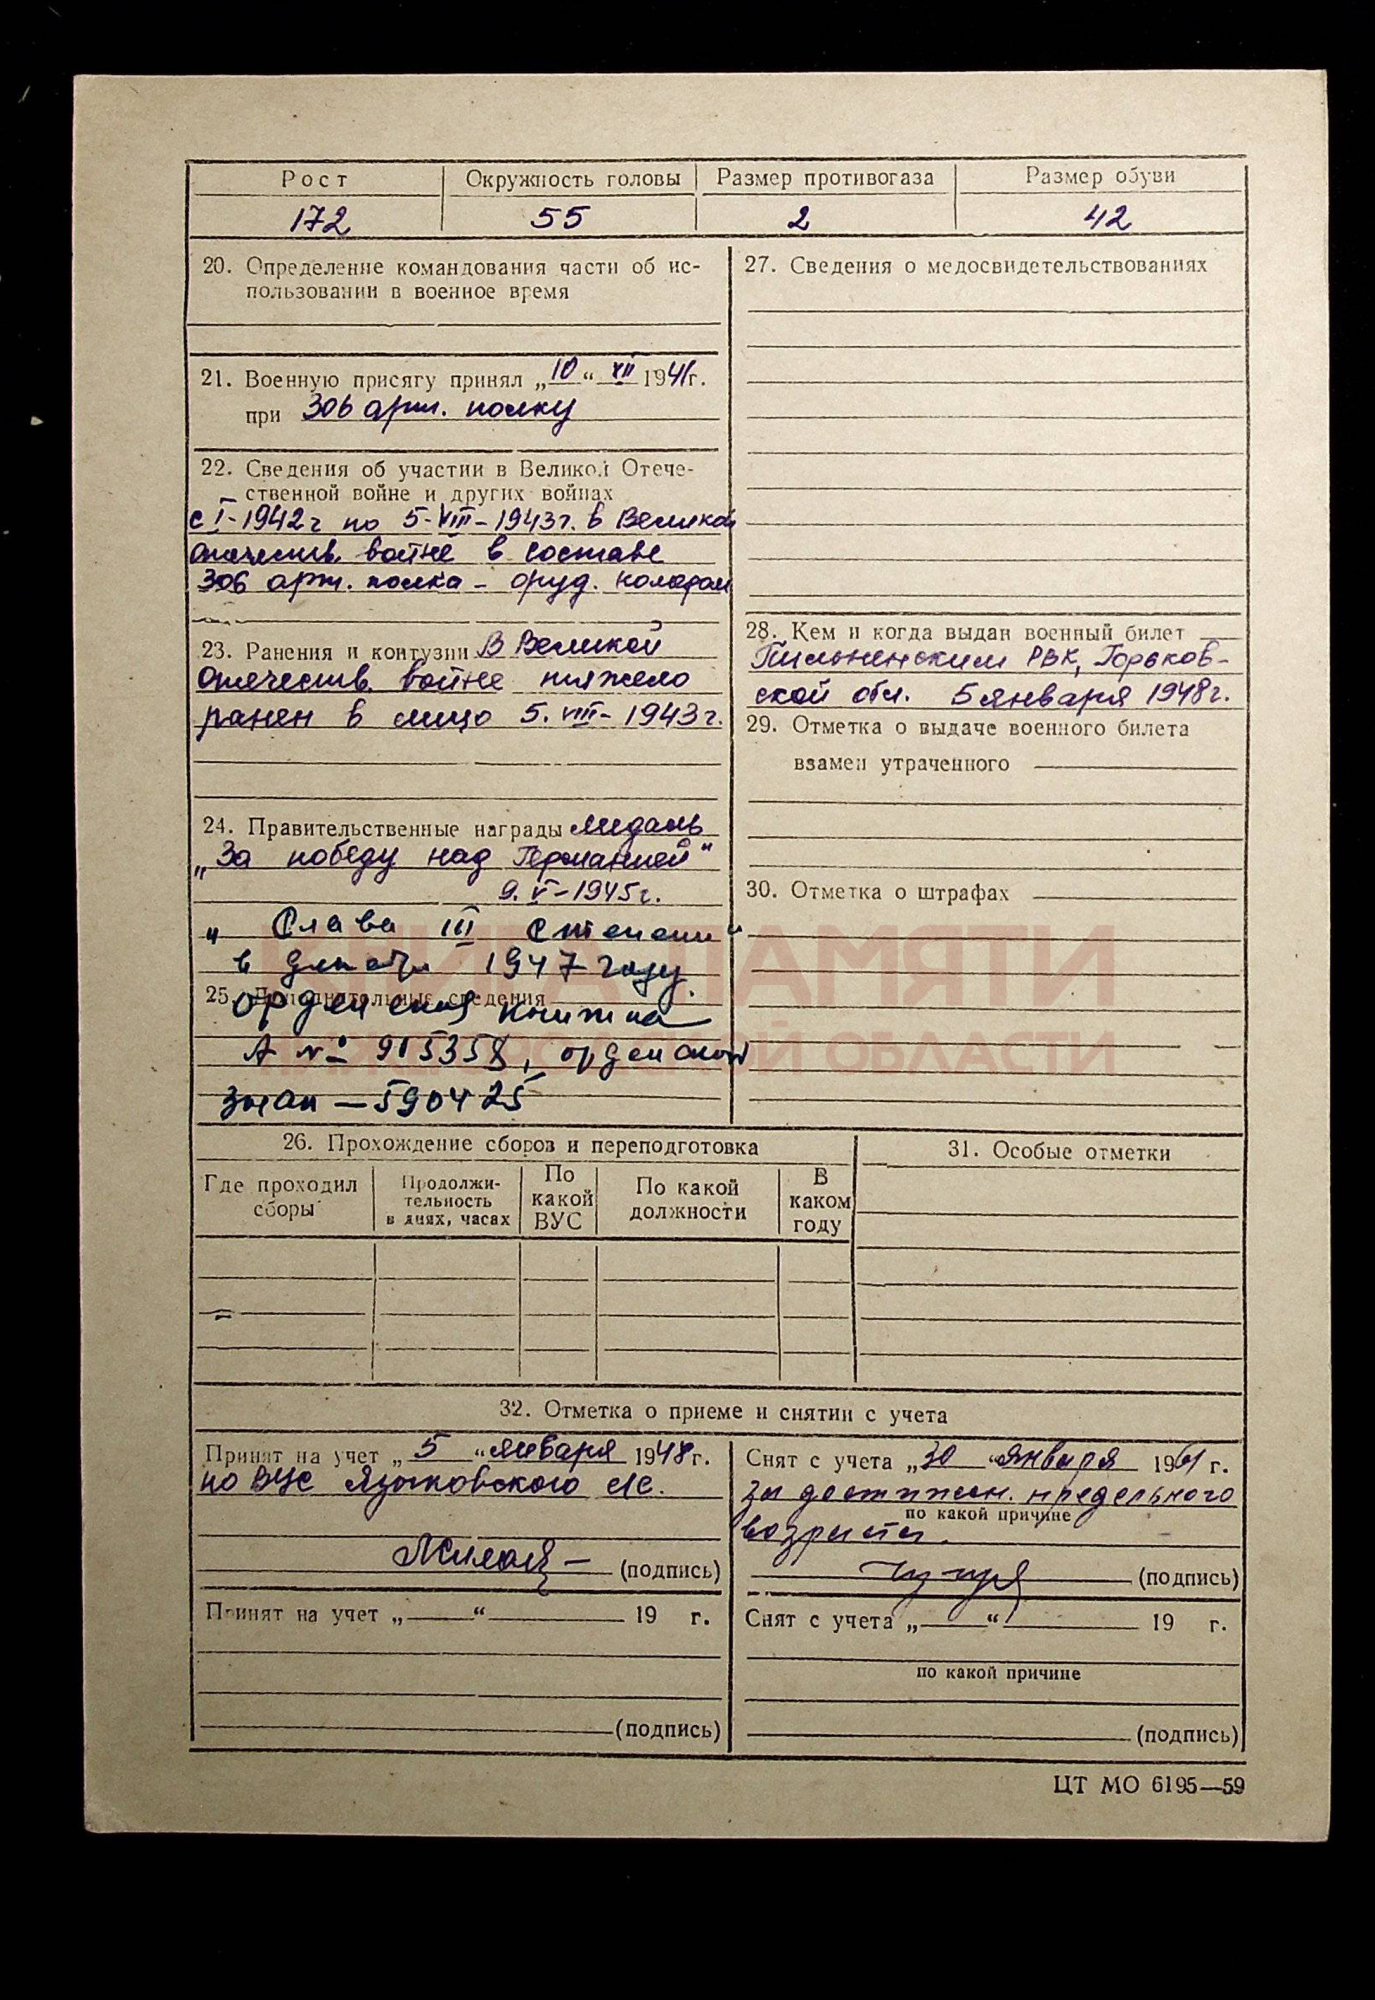 Рост Окружность головы Размер противогаза Размер обуви
172 55 2 42
20. Определение командования части об ис-
пользовании в военное время
21. Военную присягу принял „10“ XII 1941г.
при 306 арт. полку
22. Сведения об участии в Великой Отече-
ственной войне и других войнах
с I-1942г по 5-VIII-1943г. в Великой
отечеств. войне в составе
306 арт. полка – оруд. номером
23. Ранения и контузии В Великой
отечеств. войне тяжело
ранен в лицо 5.VIII-1943г.
24. Правительственные награды медаль
„За победу над Германией“
9.V-1945г.
„Слава III степени“
в 1947 году.
25. Дополнительные сведения
орденская книжка
А № 905358, орденской
знак – 590425
27. Сведения о медосвидетельствованиях
28. Кем и когда выдан военный билет
Пильненским РВК, Горьков-
ской обл. 5 января 1948г.
29. Отметка о выдаче военного билета
взамен утраченного
30. Отметка о штрафах
КНИГА ПАМЯТИ
НИЖЕГОРОДСКОЙ ОБЛАСТИ
26. Прохождение сборов и переподготовка
Где проходил сборы
Продолжи-
тельность
в днях, часах
По
какой
ВУС
По какой
должности
В
каком
году
31. Особые отметки
32. Отметка о приеме и снятии с учета
Принят на учет „5“ января 1948г.
по ВУС Языковского с/с.
(подпись)
Снят с учета „30“ января 1961 г.
за достижен. предельного
по какой причине
возраста.
(подпись)
Принят на учет „ “ 19 г.
(подпись)
Снят с учета „ “ 19 г.
по какой причине
(подпись)
ЦТ МО 6195—59